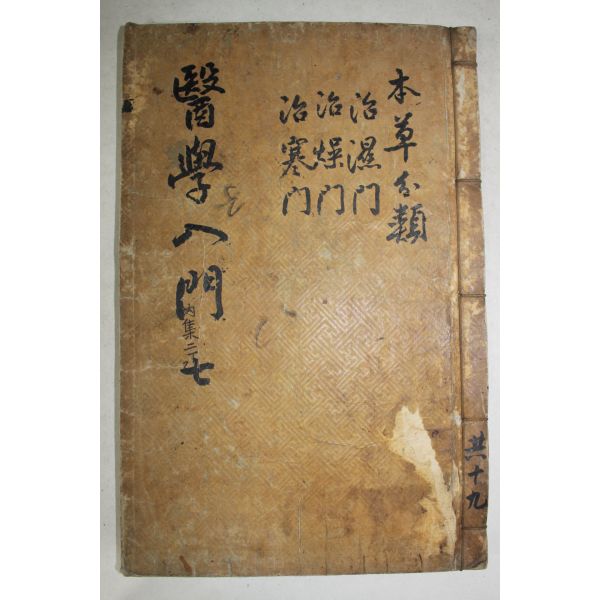 本草分類
治濕门
治燥门
治寒门
醫學入門
內集二下
七
共十九